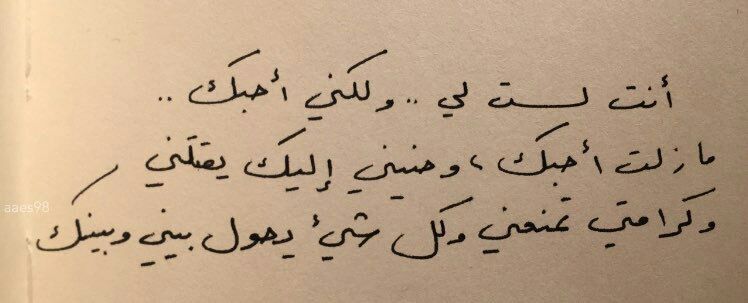 أنت لست لي .. ولكني أحبك ..
مازلت أحبك ، وحنيني إليك يقتلني
وكرامتي تمنعني وكل شيئ يحول بيني وبينك
aaes98